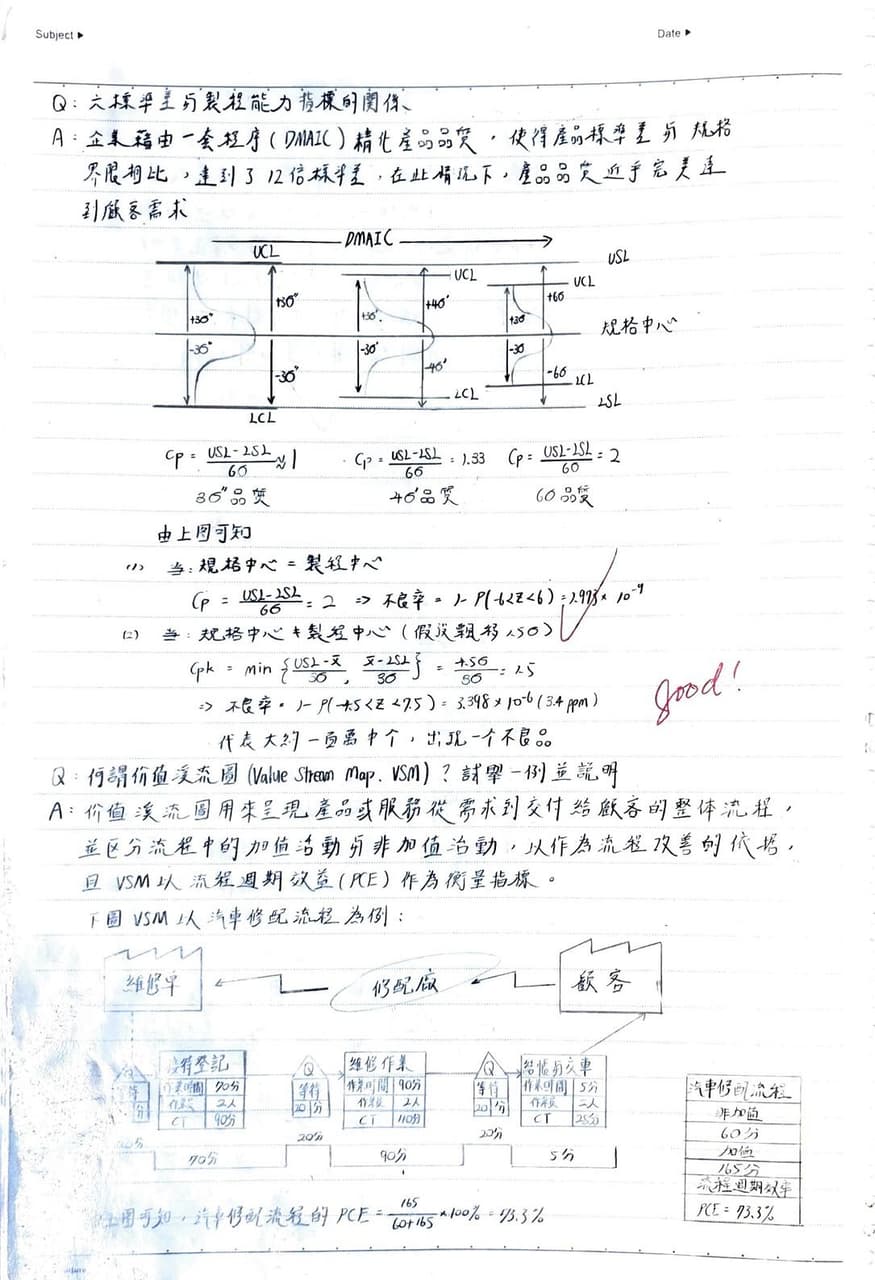 Subject ▶
Date ▶
Q: 六標準差与製程能力指標的關係
A: 企業藉由一套程序(DMAIC)精化產品品質，使得產品標準差与規格
界限相比，達到了12倍標準差，在此情況下，產品品質近乎完美達
到顧客需求
DMAIC
UCL
USL
UCL
UCL
+3σ"
+3σ"
+3σ'
+4σ'
+3σ
+6σ
規格中心
-3σ"
-3σ"
-3σ'
-4σ'
-3σ
-6σ
LCL
LCL
LSL
LCL
Cp = USL-LSL/6σ ≈ 1
Cp = USL-LSL/6σ = 1.33
Cp = USL-LSL/6σ = 2
3σ"品質
4σ'品質
6σ品質
由上图可知
(1) 當:規格中心 = 製程中心
Cp = USL-LSL/6σ = 2 => 不良率 = 1- P(-6<Z<6) = 1.973 × 10⁻⁹
(2) 當:規格中心 ≠ 製程中心 (假設飄移1.5σ)
Cpk = min {USL-x̄/3σ, x̄-LSL/3σ} = 4.5σ/3σ = 1.5
=> 不良率 = 1- P(-4.5<Z<7.5) = 3.398 × 10⁻⁶ (3.4 ppm)
good!
代表大約一百萬中个，出現一个不良品
Q: 何謂价值溪流圖(Value Stream Map. VSM)？試舉一例並説明
A: 价值溪流圖用來呈現產品或服務從需求到交付給顧客的整体流程，
並区分流程中的加值活動与非加值活動，以作為流程改善的依据，
且 VSM以流程週期效益(PCE)作為衡量指標。
下圖VSM以汽車修配流程為例：
維修單
修配廠
顧客
登記
作業時間 70分
作業員 2人
CT 90分
Q
等待
20分
維修作業
作業時間 90分
作業員 2人
CT 110分
Q
等待
20分
結帳与交車
作業時間 5分
作業員 2人
CT 25分
20分
70分
20分
90分
20分
5分
汽車修配流程
非加值
60分
加值
165分
流程週期效率
PCE = 73.3%
上圖可知，汽車修配流程的 PCE = 165/60+165 × 100% = 73.3%